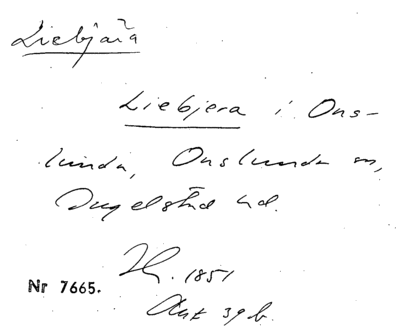 Liebjära
Liebjera i Ons-
lunda, Onslunda sn,
Ingelstad hd.
1851
Nr 7665.
Akt 39 b.